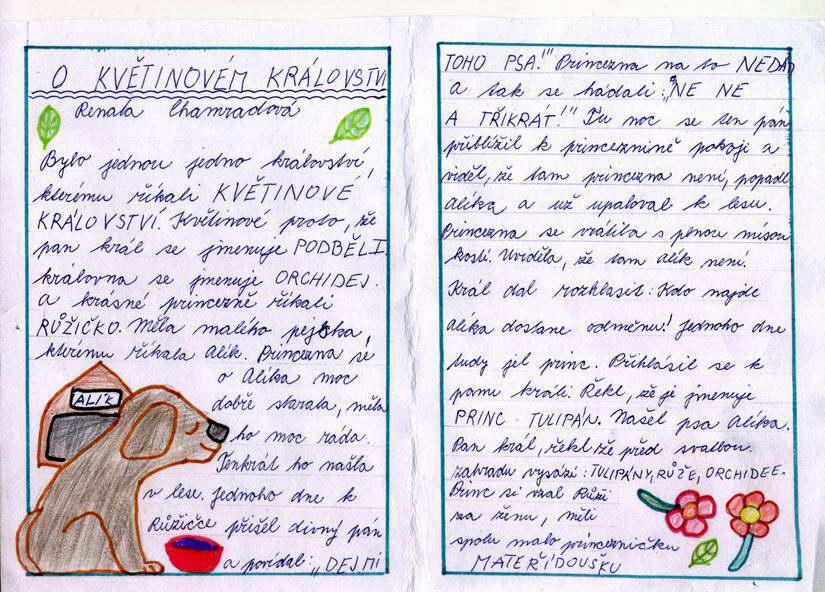 O KVĚTINOVÉM KRÁLOVSTVÍ
Renata Chamradová
Bylo jednou jedno království,
kterému říkali KVĚTINOVÉ
KRÁLOVSTVÍ. Květinové proto, že
pan král se jmenuje PODBĚL
královna se jmenuje ORCHIDEJ.
a krásné princezně říkali
RŮŽIČKO. Měla malého pejska,
kterému říkala Alík. Princezna se
o Alíka moc
dobře starala, měla
ho moc ráda.
Tenkrát ho našla
v lese. Jednoho dne k
Růžičce přišel divný pán
a povídal: „DEJ MI
ALÍK
TOHO PSA!" Princezna na to NEDÁM
a tak se hádali: „NE NE
A TŘIKRÁT!" Tu noc se ten pán
přiblížil k princeznině pokoji a
viděl, že tam princezna není, popadl
Alíka a už upaloval k lesu.
Princezna se vrátila s plnou mísou
kostí. Uviděla, že tam Alík není.
Král dal rozhlásit: Kdo najde
Alíka dostane odměnu! Jednoho dne
tudy jel princ. Přihlásil se k
panu králi. Řekl, že je jmenuje
PRINC TULIPÁN. Našel psa Alíka.
Pan král, řekl že před svatbou
zahradu vysází: TULIPÁNY, RŮŽE, ORCHIDEE.
Princ si vzal Růži
za ženu, měli
spolu malo princezničku
MATEŘÍDOUŠKU